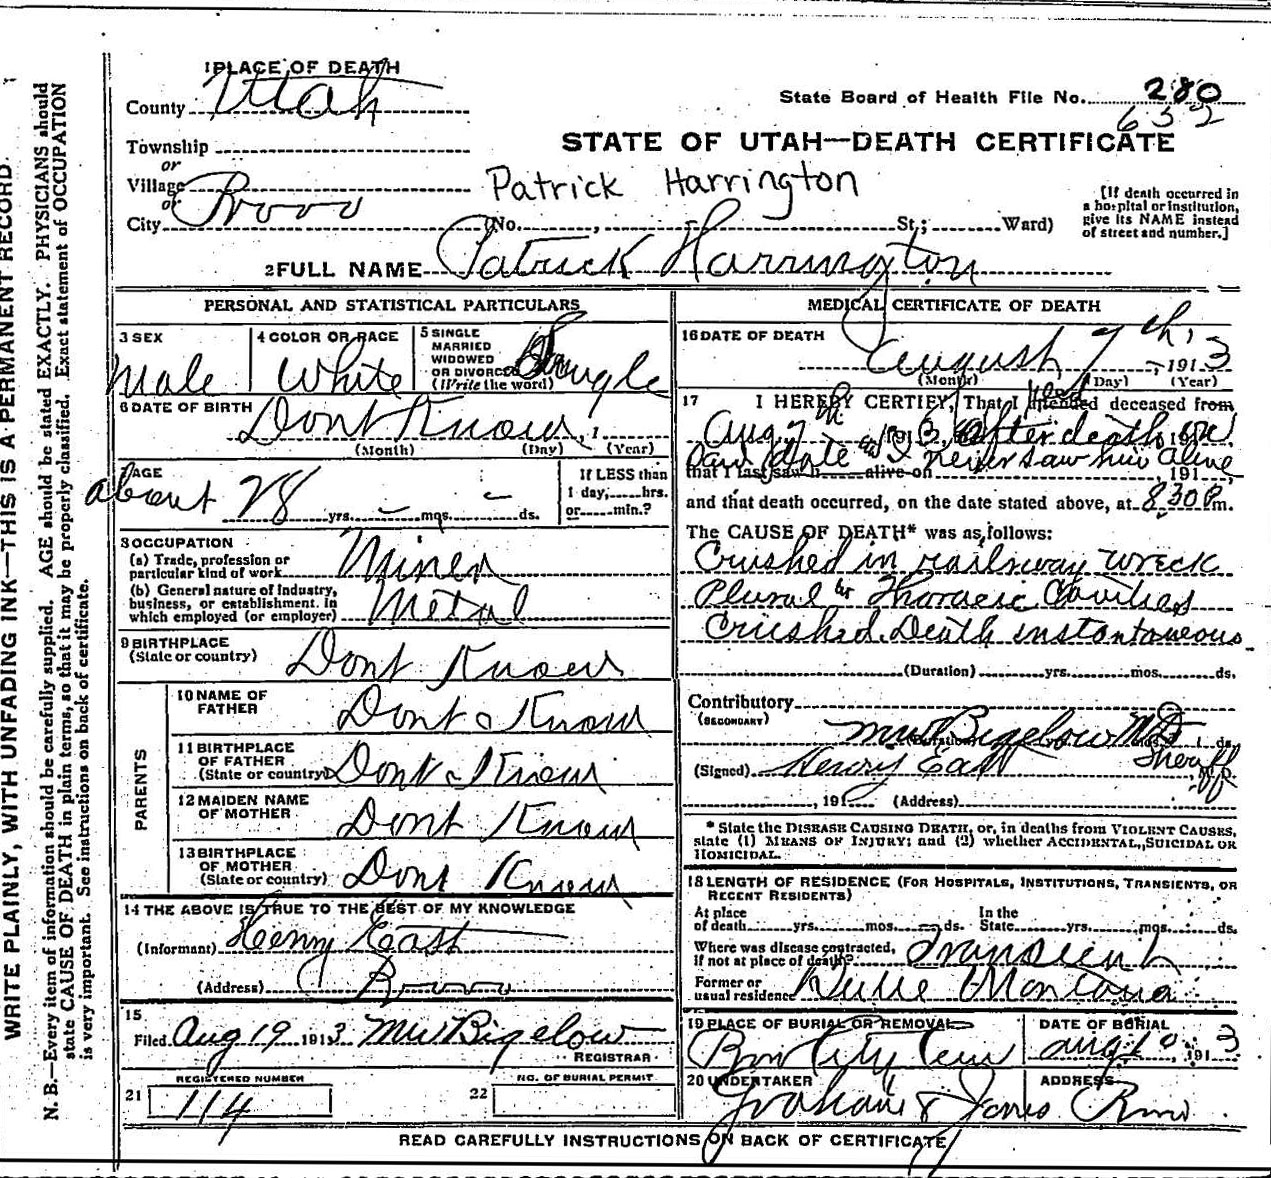 1 PLACE OF DEATH
County Utah
State Board of Health File No. 280
632
Township
STATE OF UTAH—DEATH CERTIFICATE
or
Village
Patrick Harrington
or
City Provo (No. , St.; Ward)
[If death occurred in
a hospital or institution,
give its NAME instead
of street and number.]
2 FULL NAME Patrick Harrington
PERSONAL AND STATISTICAL PARTICULARS
3 SEX
Male
4 COLOR OR RACE
White
5 SINGLE
MARRIED
WIDOWED
OR DIVORCED
(Write the word)
Single
6 DATE OF BIRTH
Dont Know, 1
(Month) (Day) (Year)
AGE
about 28 yrs. — mos. — ds.
If LESS than
1 day, hrs.
or min.?
8 OCCUPATION
(a) Trade, profession or
particular kind of work Miner
(b) General nature of Industry,
business, or establishment in
which employed (or employer) Metal
9 BIRTHPLACE
(State or country) Dont Know
PARENTS
10 NAME OF
FATHER Dont Know
11 BIRTHPLACE
OF FATHER
(State or country) Dont Know
12 MAIDEN NAME
OF MOTHER Dont Know
13 BIRTHPLACE
OF MOTHER
(State or country) Dont Know
14 THE ABOVE IS TRUE TO THE BEST OF MY KNOWLEDGE
(Informant) Henry East
(Address) Provo
15
Filed Aug 19 1913 MW Bigelow
REGISTRAR
REGISTERED NUMBER
21 114
NO. OF BURIAL PERMIT
22
MEDICAL CERTIFICATE OF DEATH
16 DATE OF DEATH
August 7th, 1913
(Month) (Day) (Year)
17 I HEREBY CERTIFY, That I attended deceased from
Aug 7th 1913 after death on
date as I never saw him alive
that I last saw h alive on 191 ,
and that death occurred, on the date stated above, at 8 30 P m.
The CAUSE OF DEATH* was as follows:
Crushed in railway wreck
Plural & Thoracic Cavities
Crushed. Death instantaneous
(Duration) yrs. mos. ds.
Contributory
(SECONDARY)
MW Bigelow MD
(Duration) ds.
(Signed) Henry East Sheriff, M.D.
, 191 (Address)
* State the DISEASE CAUSING DEATH, or, in deaths from VIOLENT CAUSES,
state (1) MEANS OF INJURY; and (2) whether ACCIDENTAL, SUICIDAL OR
HOMICIDAL.
18 LENGTH OF RESIDENCE (FOR HOSPITALS, INSTITUTIONS, TRANSIENTS, OR
RECENT RESIDENTS)
At place
of death yrs. mos. ds.
In the
State yrs. mos. ds.
Where was disease contracted,
if not at place of death? Transient
Former or
usual residence Butte Montana
19 PLACE OF BURIAL OR REMOVAL
Prov City Cem
DATE OF BURIAL
Aug 10, 1913
20 UNDERTAKER
Graham & Jones
ADDRESS
Provo
READ CAREFULLY INSTRUCTIONS ON BACK OF CERTIFICATE
WRITE PLAINLY, WITH UNFADING INK—THIS IS A PERMANENT RECORD.
N. B.—Every item of information should be carefully supplied. AGE should be stated EXACTLY. PHYSICIANS should
state CAUSE OF DEATH in plain terms, so that it may be properly classified. Exact statement of OCCUPATION
is very important. See instructions on back of certificate.